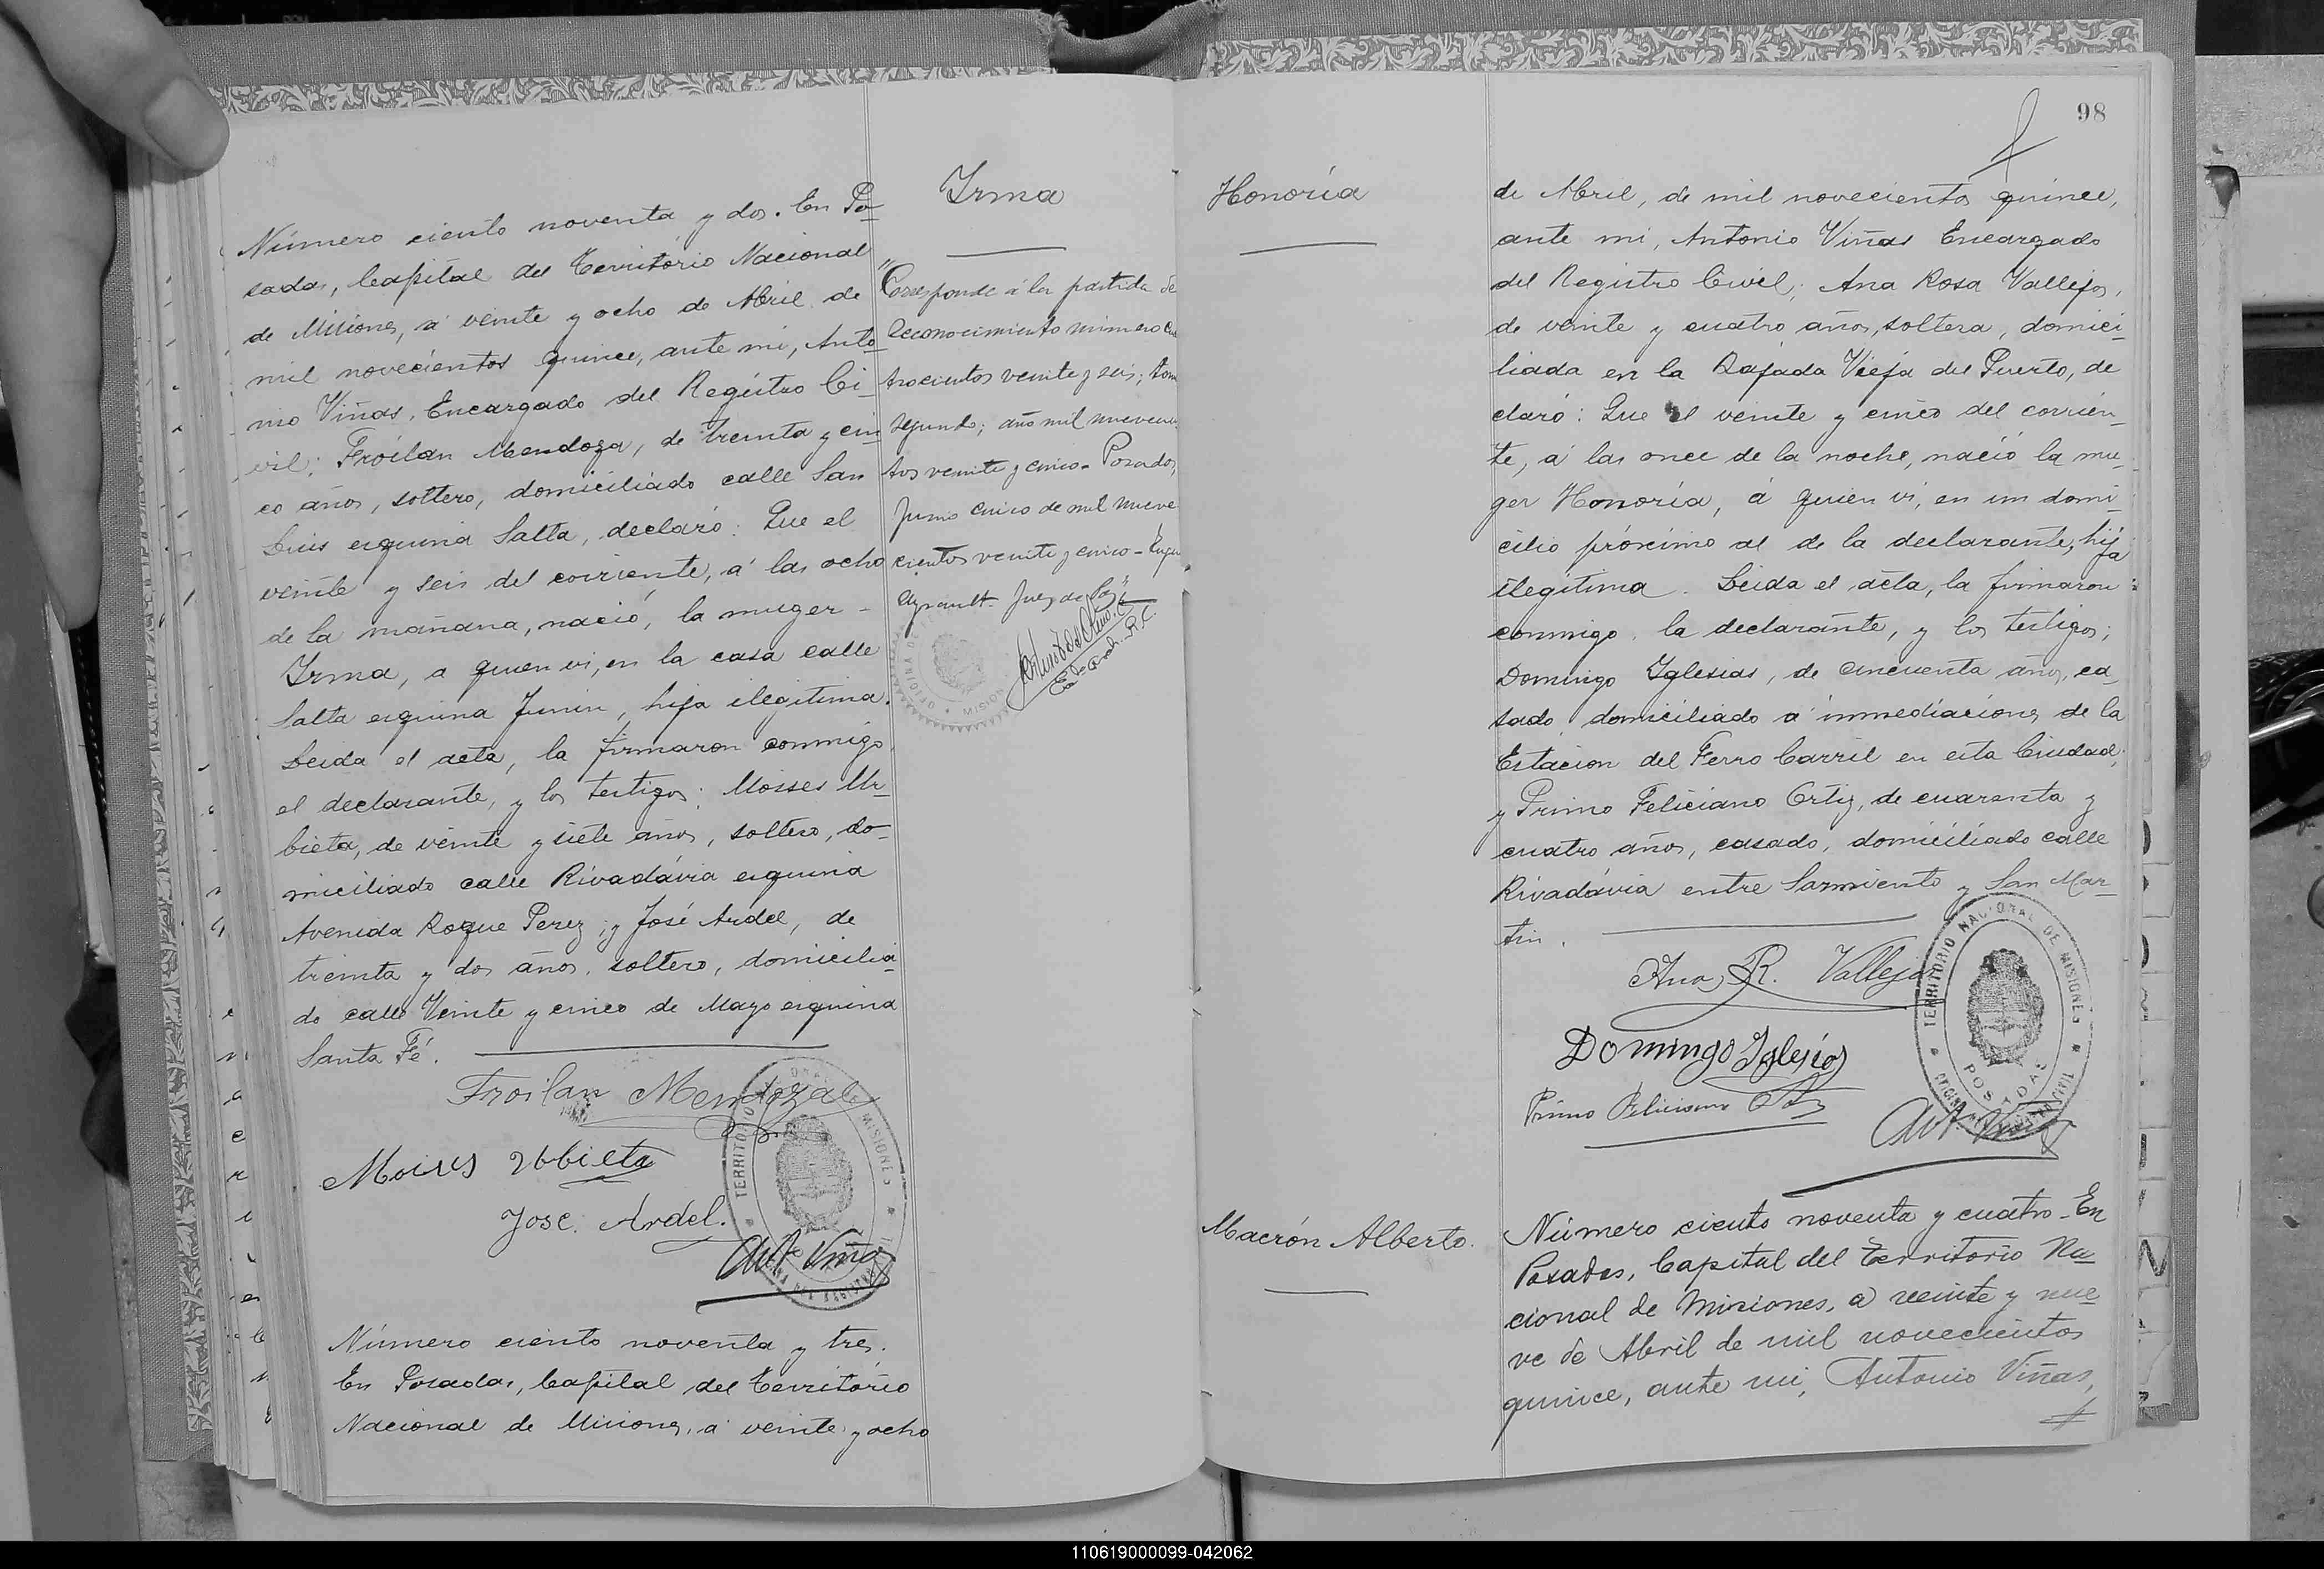 Número ciento noventa y dos. En Po-
sadas, Capital del Territorio Nacional
de Misiones, á veinte y ocho de Abril de
mil novecientos quince, ante mi, Anto-
nio Viñas, Encargado del Registro Ci-
vil; Fróilan Mendoza, de treinta y cin
co años, soltero, domiciliado calle San
Luis esquina Salta, declaró: Que el
veinte y seis del corriente, á las ocho
de la mañana, nació, la muger -
Irma, a quien vi, en la casa calle
Salta esquina Junin, hija ilegitima.
Leida el acta, la firmaron conmigo
el declarante, y los testigos; Moisses Ur-
bieta, de veinte y siete años, soltero, do-
miciliado calle Rivadávia esquina
Avenida Roque Perez; y José Ardel, de
treinta y dos años, soltero, domicilia-
do calle Veinte y cinco de Mayo esquina
Santa Fé.
Froilan Mendoza
Moises Urbieta
Jose. Ardel.
Ant. Viñas
TERRITORIO NACIONAL DE MISIONES
Número ciento noventa y tres.
En Posadas, Capital del Territorio
Nacional de Misiones, á veinte y ocho
Irma
"Corresponde á la partida de
reconocimiento número cua
trocientos veinte y seis; tom
segundo; año mil novecien
tos veinte y cinco - Posadas,
Junio cinco de mil nueve
cientos veinte y cinco -
Juez de Paz"
OFICINA DE
MISION
98
Honoria
de Abril, de mil novecientos quince,
ante mi, Antonio Viñas Encargado
del Registro Civil; Ana Rosa Vallejos,
de veinte y cuatro años, soltera, domici-
liada en la Bajada Vieja del Puerto, de
claró: Que el veinte y cinco del corrien-
te, á las once de la noche, nació la mu-
ger Honoria, á quien vi, en un domi-
cilio próximo al de la declarante, hija
ilegitima. Leida el acta, la firmaron
conmigo, la declarante, y los testigos;
Domingo Iglesias, de cincuenta años, ca-
sado, domiciliado á inmediaciones de la
Estacion del Ferro Carril en esta Ciudad;
y Primo Feliciano Ortiz, de cuarenta y
cuatro años, casado, domiciliado calle
Rivadávia entre Sarmiento y San Mar-
tin.
Ana R. Vallejos
Domingo Iglesias
Primo Feliciano Ortiz
Ant. Viñas
TERRITORIO NACIONAL DE MISIONES
POSADAS
Macrón Alberto.
Número ciento noventa y cuatro - En
Posadas, Capital del Territorio Na-
cional de Misiones, a veinte y nue-
ve de Abril de mil novecientos
quince, ante mi, Antonio Viñas,
110619000099-042062